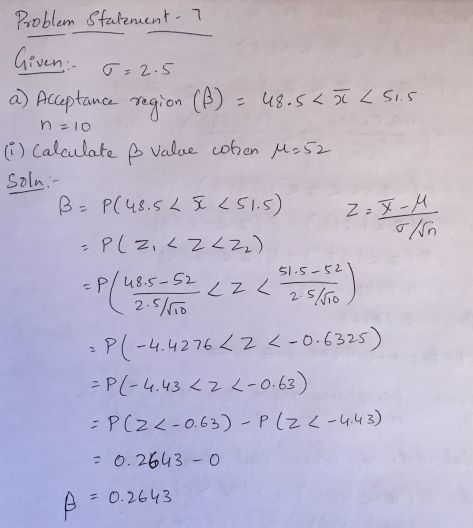 Problem Statement - 7
Given:- σ = 2.5
a) Acceptance region (β) = 48.5 < x̄ < 51.5
n = 10
(i) Calculate β value when μ=52
Soln:-
β = P(48.5 < x̄ < 51.5) Z = x̄ - μ / σ/√n
= P(Z₁ < Z < Z₂)
= P(48.5-52 / 2.5/√10 < Z < 51.5-52 / 2.5/√10)
= P(-4.4276 < Z < -0.6325)
= P(-4.43 < Z < -0.63)
= P(Z < -0.63) - P(Z < -4.43)
= 0.2643 - 0
β = 0.2643